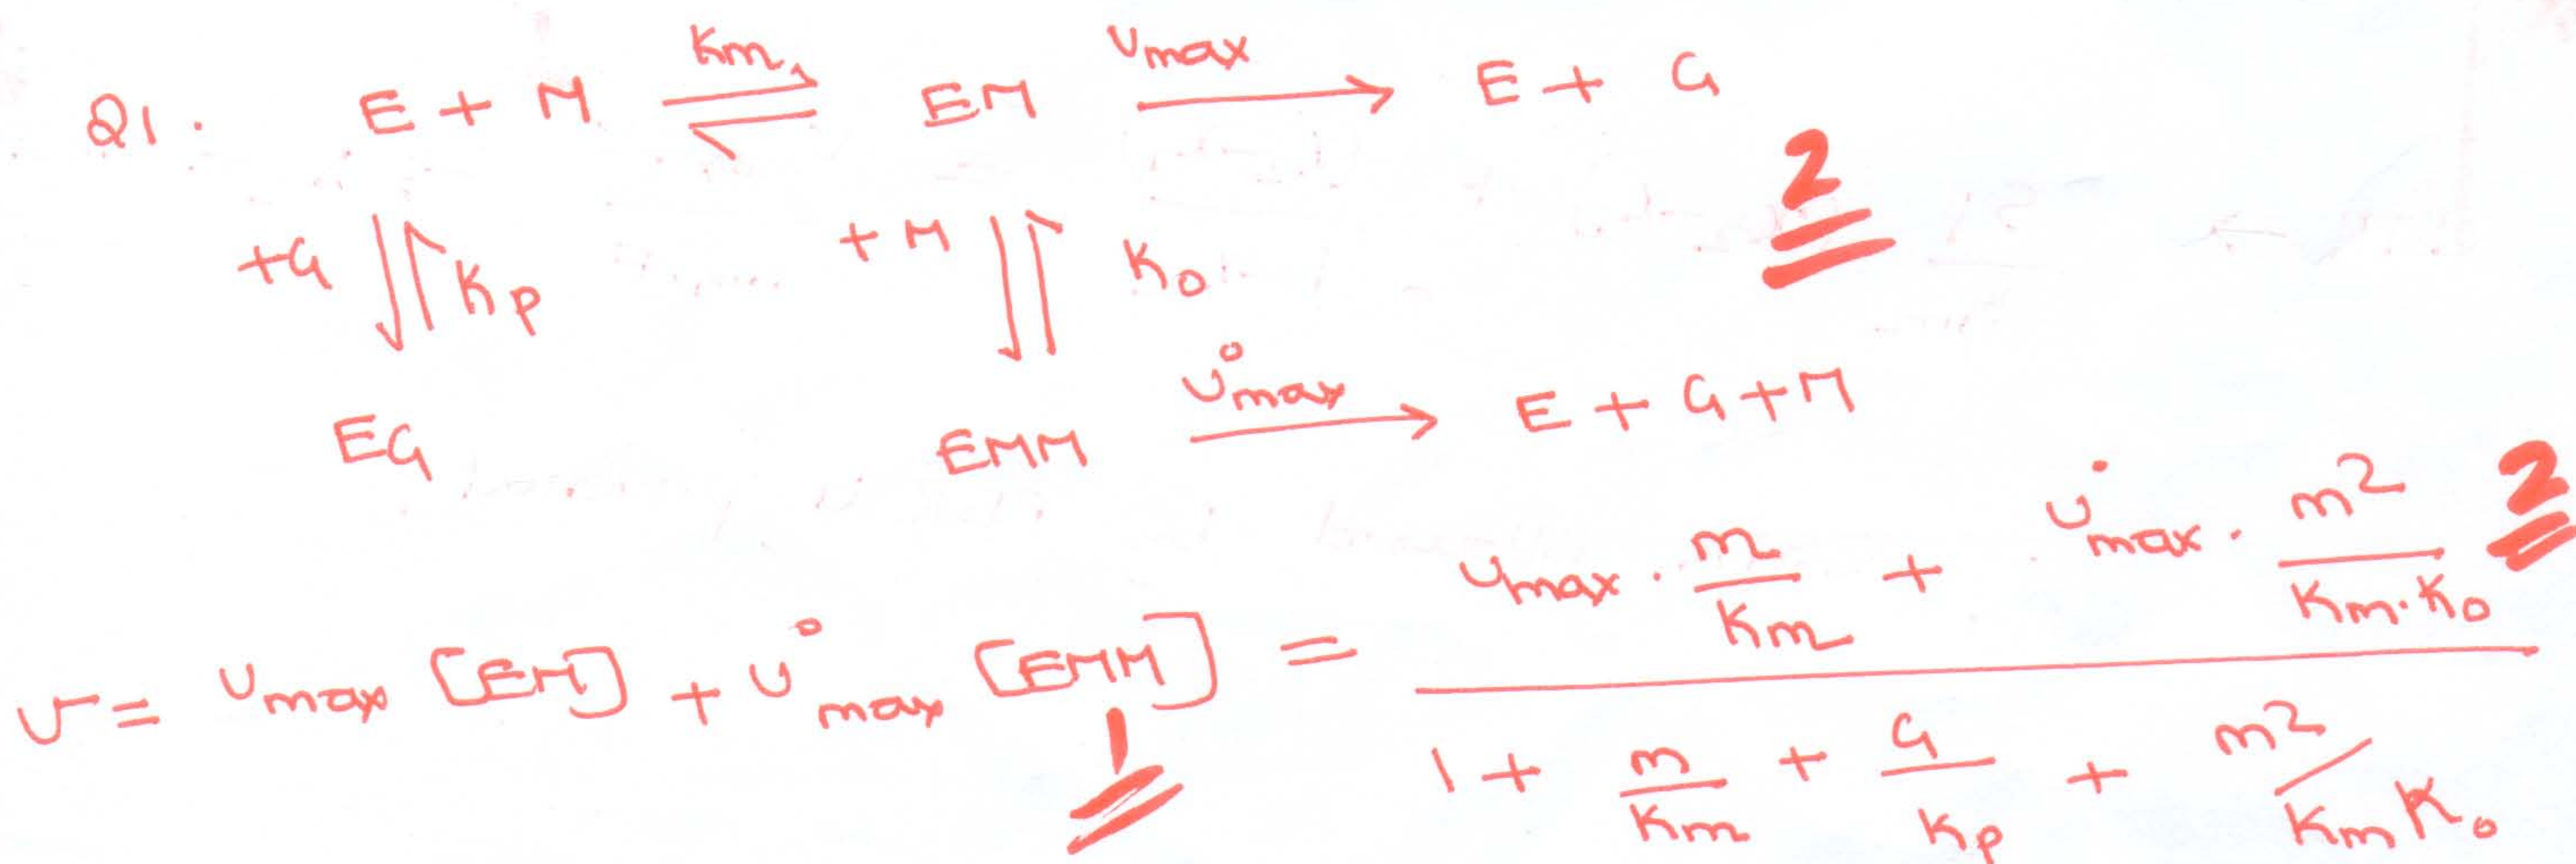 Q1. E + M ⇌ Km EM → Vmax E + G
2
+G ⇅ Kp +M ⇅ Ko
EG EMM → V°max E + G + M
V = Vmax [EM] + V°max [EMM] = (Vmax · m/Km + V°max · m²/(Km·Ko)) / (1 + m/Km + G/Kp + m²/(Km Ko))
2
1